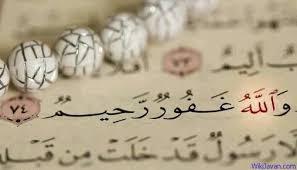 أَلِيمٌ ٧٣
وَاللَّهُ غَفُورٌ رَّحِيمٌ ٧٤
رَسُولٌ قَدْ خَلَتْ مِن
WikiJavan.com